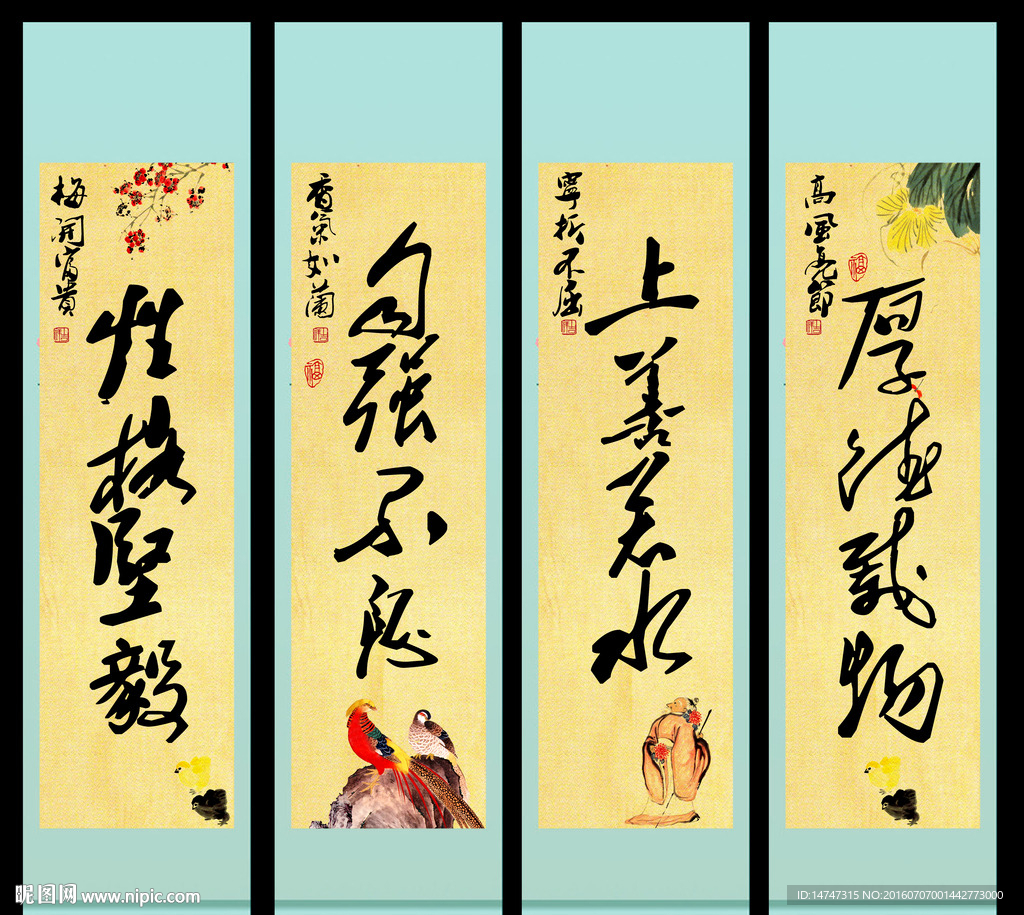 梅開富貴
性格堅毅
香氣如蘭
自强不息
寧折不屈
上善若水
高風亮節
厚德載物
福
福
昵图网 www.nipic.com
ID:14747315 NO:20160707001442773000